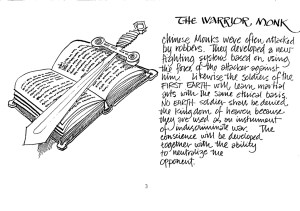 THE WARRIOR MONK
Chinese Monks were often attacked
by robbers. They developed a new
fighting system based on using
the force of the attacker against
him. Likewise the soldiers of the
FIRST EARTH will learn martial
arts with the same ethical basis.
NO EARTH soldier shall be denied
the kingdom of heaven because
they are used as an instrument
of indiscriminate war. The
conscience will be developed
together with the ability
to neutralize the
opponent.
3